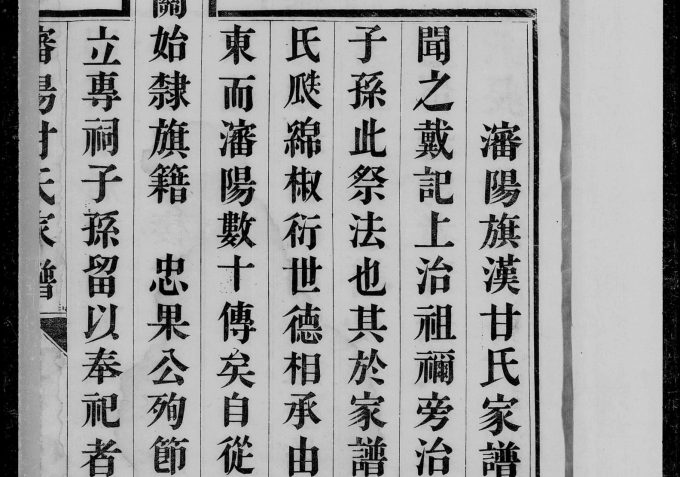 瀋陽旗漢甘氏家譜
聞之戴記上治祖禰旁治
子孫此祭法也其於家譜
氏瓞綿椒衍世德相承由
東而瀋陽數十傳矣自從
關始隸旗籍　忠果公殉節
立專祠子孫留以奉祀者
瀋陽甘氏家譜